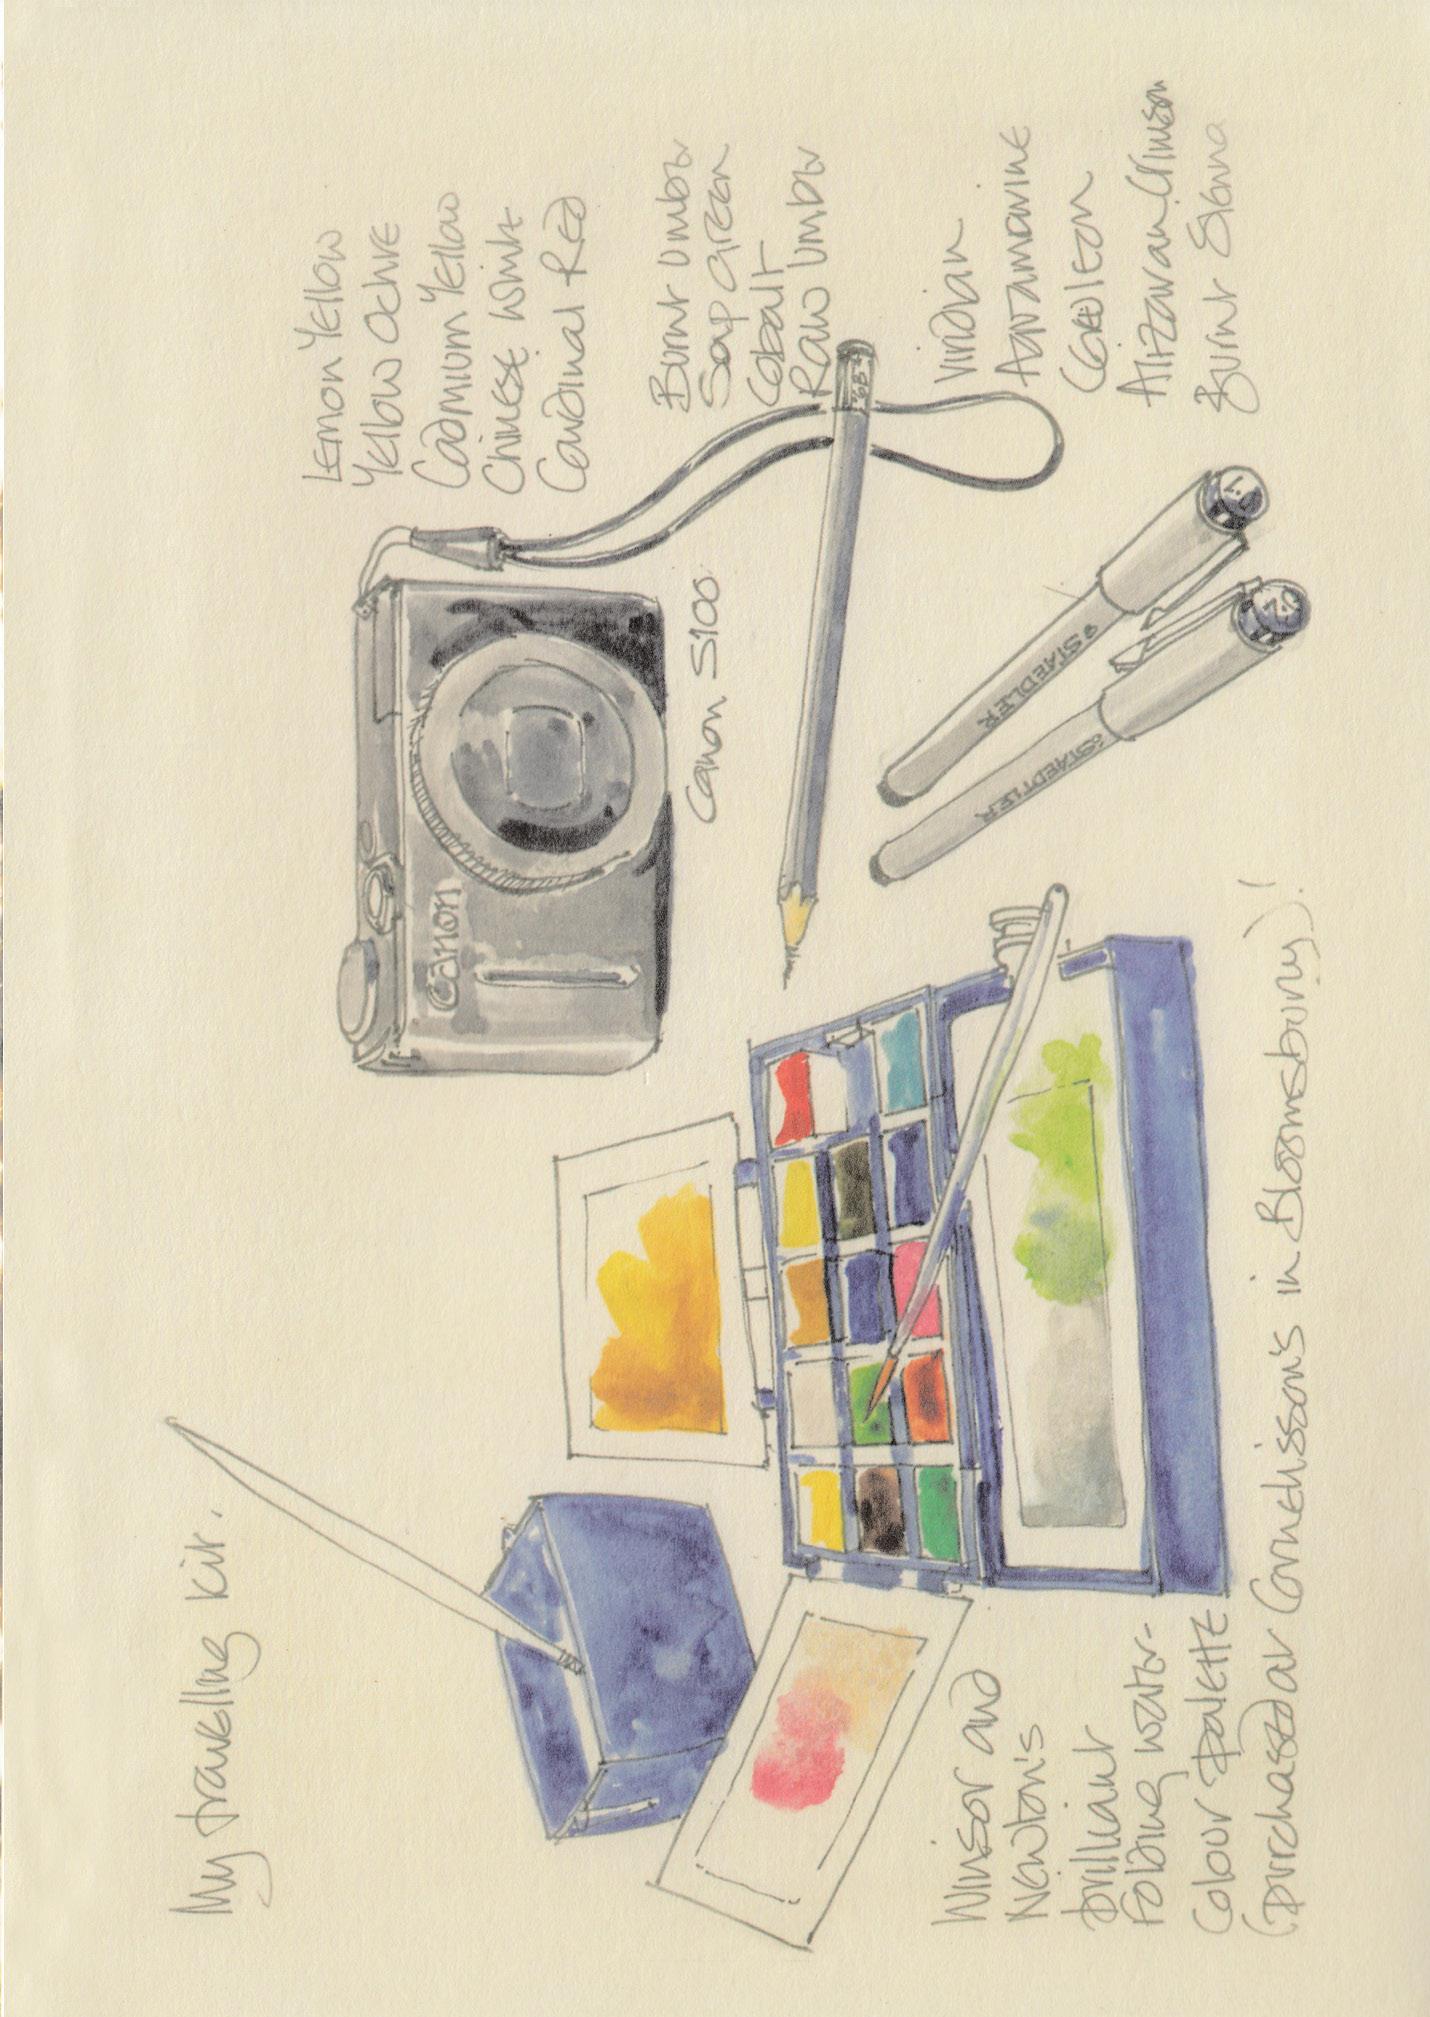 My travelling kit.
Canon
Canon S100
Lemon Yellow
Yellow Ochre
Cadmium Yellow
Chinese White
Cardinal Red
Burnt Umber
Sap Green
Cobalt
Raw Umber
Viridian
Aquamarine
Alizaran Crimson
Burnt Sienna
6B
STAEDLER
STAEDTLER
Winsor and
Newton's
brilliant
folding water-
colour palette
(purchased at Cornelisson's in Bloomsbury)!